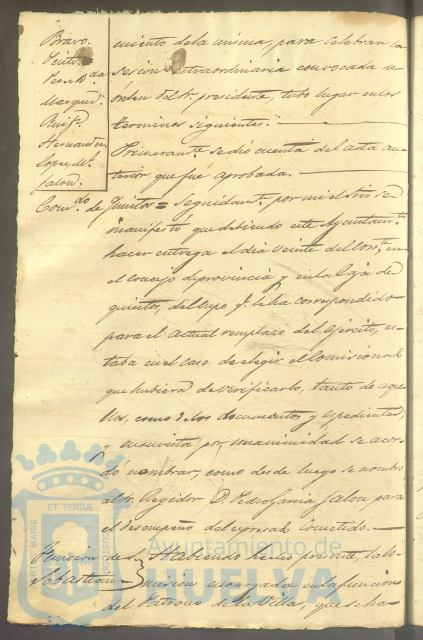 Bravo.
Pinto.
Hernand
Lopez, M.
Jalon.
miento de la misma, para celebrar la
sesion extraordinaria convocada de
orden del Sr. presidente, tubo lugar en los
terminos siguientes.
Primeramte. se dió cuenta del acta an-
terior que fué aprobada.
Comdo. de Quintos = Seguidamte. por mi el Srio. se
manifestó que debiendo este Ayuntamto.
hacer entrega el dia veinte del corrte. en
el Consejo de provincia y en la Caja de
quintos, del cupo q. le ha correspondido
para el actual remplazo del Ejército, es-
taba en el caso de elegir el Comisionado
que hubiera de verificarlo, tanto de aque-
llos, como de los documentos y espedientes,
y en su vista por unanimidad se acor-
dó nombrar, como desde luego se nombra
al Sr. Regidor D. Pedro Garcia Jalon, para
el desempeño del espresado Cometido.
Funcion de S. Habiendo hecho presente, la Co-
Sebastian mision encargada en la funcion
del Patrono de la Villa, que se ha-
Ayuntamiento de
HUELVA
ET TERRÆ